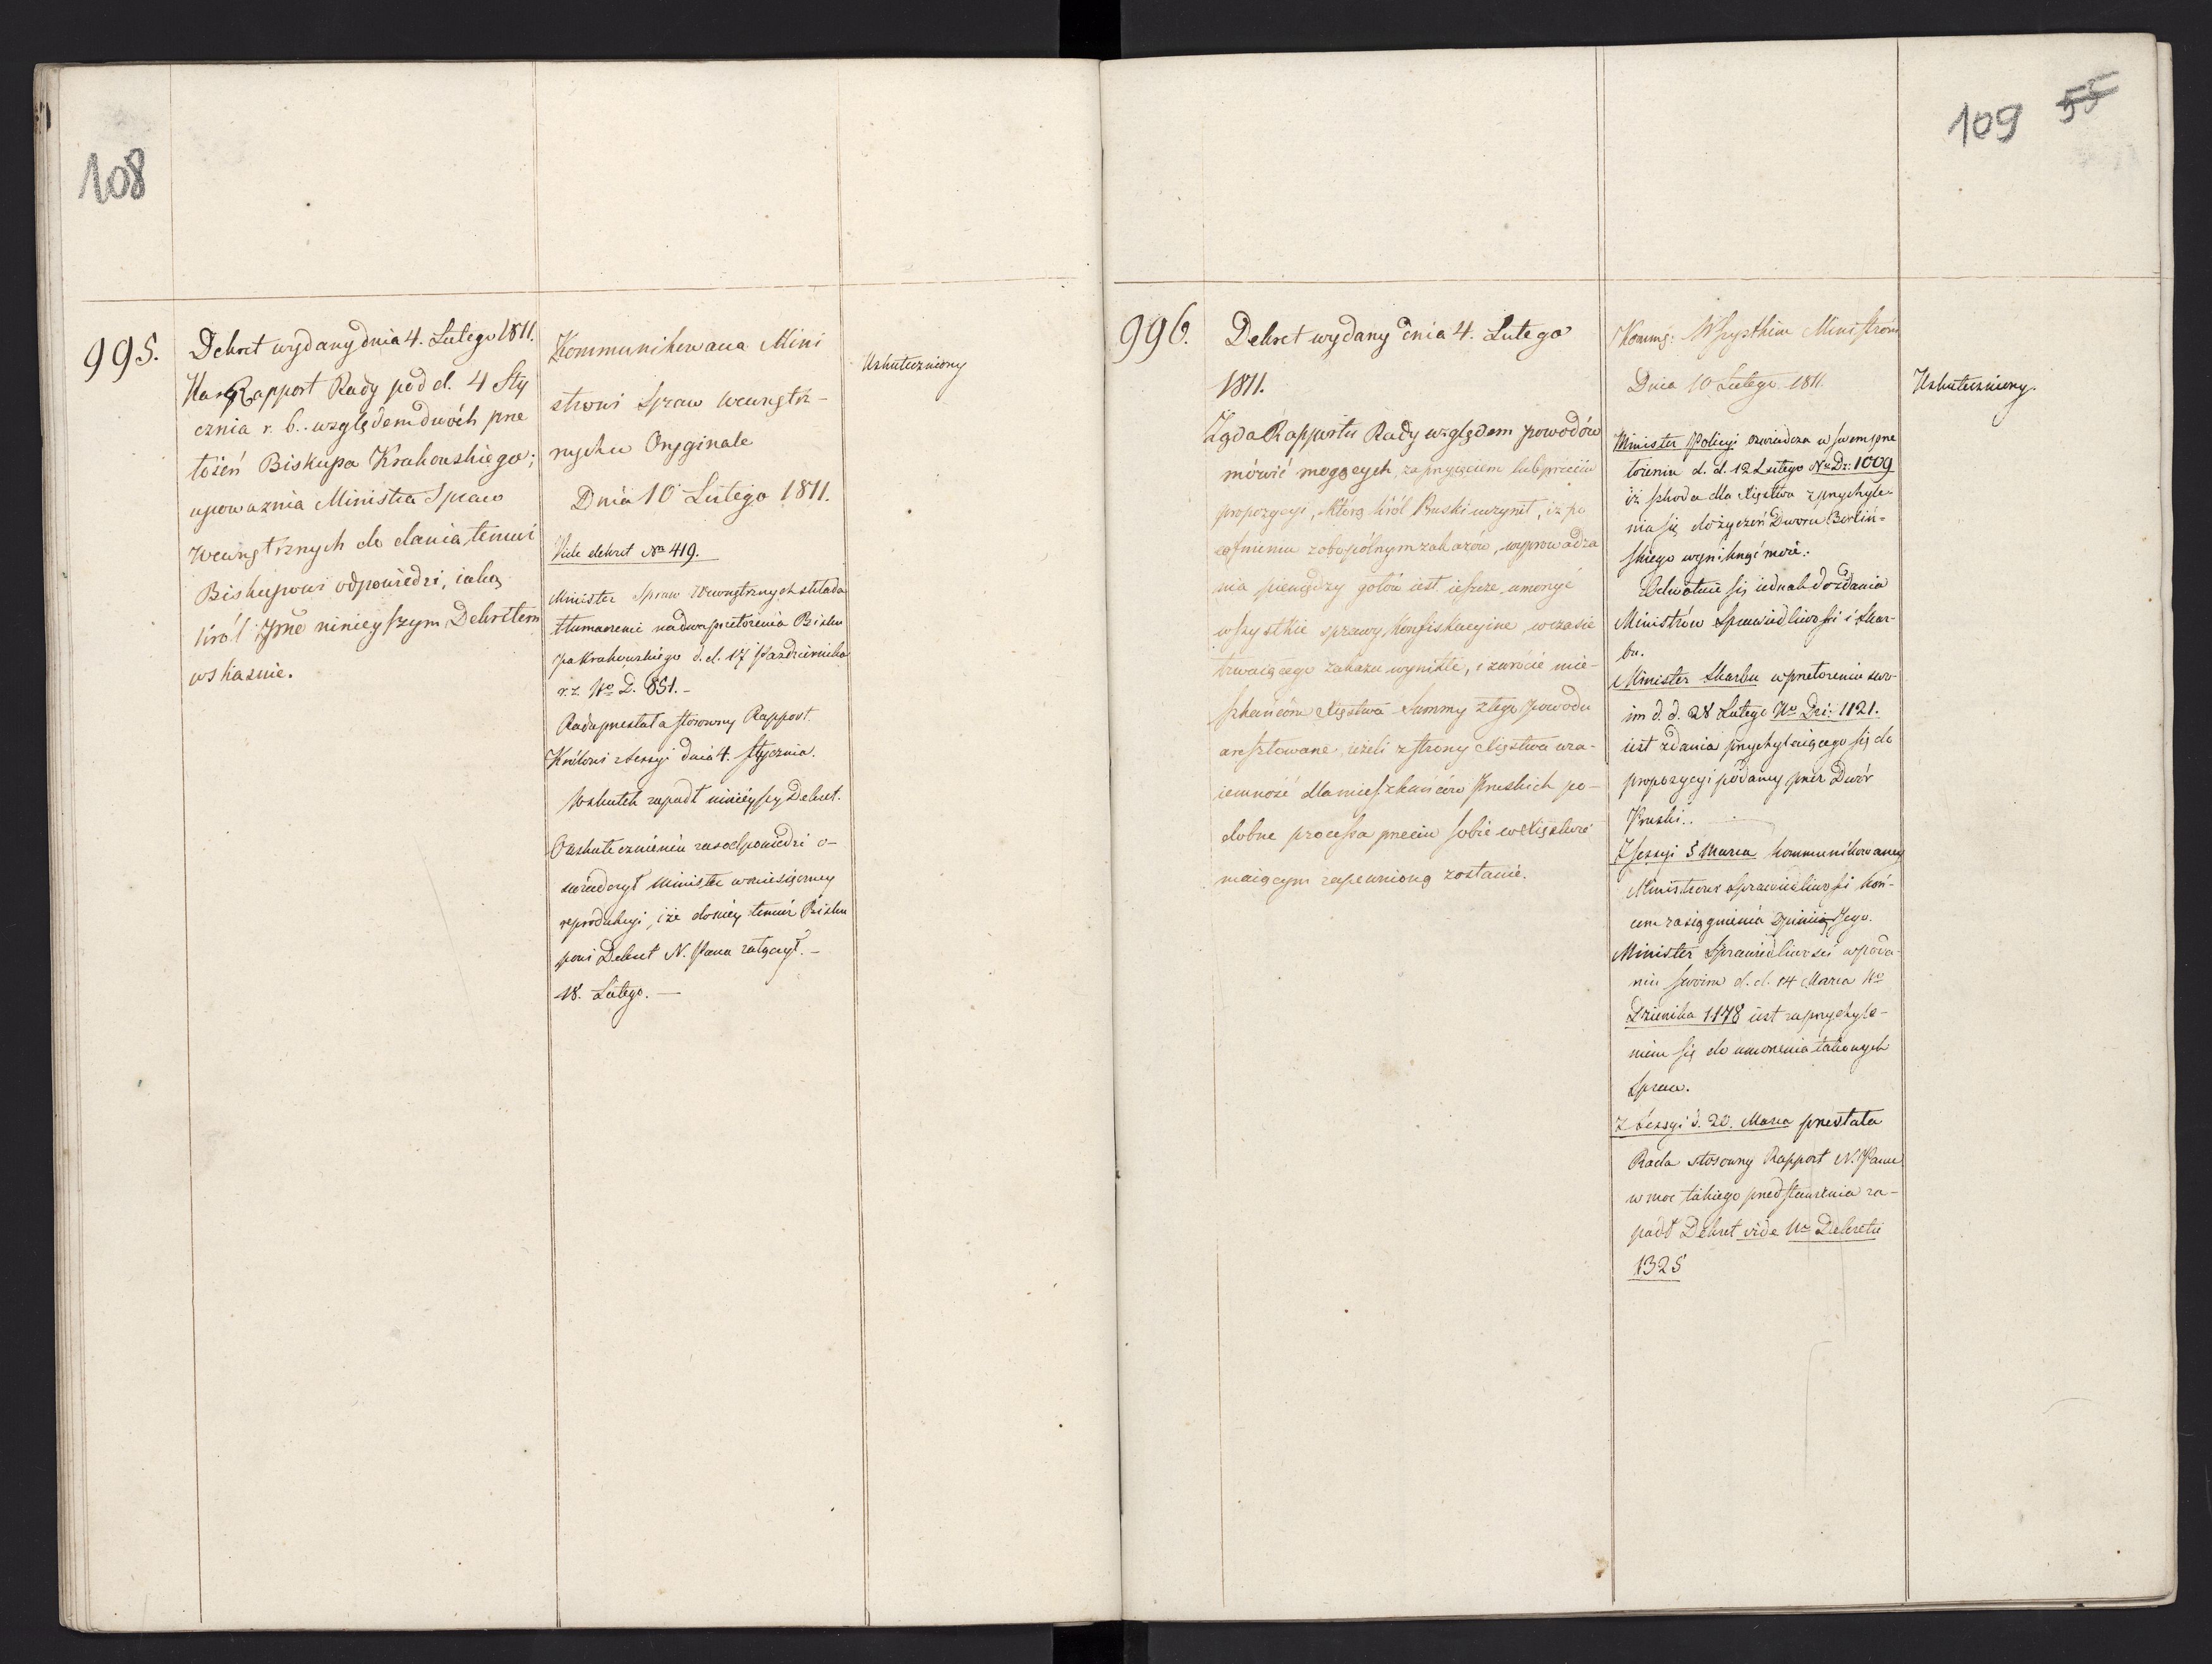 108
995.
Dekret wydany dnia 4. Lutego 1811.
Na Rapport Rady pod d. 4 Sty
cznia r. b. względem dwóch prze
łożeń Biskupa Krakowskiego;
upoważnia Ministra Spraw
Wewnętrznych do dania temuż
Biskupowi odpowiedzi, iaką
Król Jmć ninieyszym Dekretem
wskazuie.
Kommunikowana Mini
strowi Spraw Wewnętrz-
nych w Oryginale
Dnia 10 Lutego 1811.
Vide dekret No 419.
Minister Spraw Wewnętrznych składa
tłumaczenie na dwa przełożenia Bisku
pa Krakowskiego d. d. 17 Października
r. z. No D. 851. -
Rada przesłała stosowny Rapport
Królowi z Sessyi dnia 4. Stycznia.
Wskutek zapadł ninieyszy Dekret.
O uskutecznieniu zaś odpowiedzi o-
świadczył Minister w miesięczney
reprodukcyi, iże do niey temuż Bisku
powi Dekret N. Pana załączył. -
18. Lutego. -
Uskuteczniony
109 55
996.
Dekret wydany dnia 4. Lutego
1811.
Żąda Rapportu Rady względem powodów
mówić mogących za przyięciem lub przeciw
propozycyi, którą Król Pruski uczynił, iż po
cofnieniu zobopólnym zakazów, wyprowadza
nia pieniędzy gotów iest ieszcze umorzyć
wszystkie sprawy Konfiskacyine, w czasie
trwaiącego zakazu wynikłe, i zwrócić mie-
szkańcom Xięstwa Summy z tego powodu
aresztowane ieżeli z strony Xięstwa wza-
iemność dla mieszkańców Pruskich po-
dobne processa przeciw sobie w Xięstwie
maiącym zapewnioną zostanie.
Kommg: Wszystkim Ministrom
Dnia 10 Lutego 1811.
Minister Policyi oświadcza w swem prze
łożeniu d. d. 12 Lutego No Dz: 1009
iż szkoda dla Xięstwa z przychyle-
nia się do życzeń Dworu Berliń-
skiego wyniknąć może.
Odwołuie się iednak do zdania
Ministrów Sprawiedliwości i Skar-
bu.
Minister Skarbu w przełożeniu swo-
im d. d. 28 Lutego No Dzi: 1121.
iest zdania przychylaiącego się do
propozycyi podaney przez Dwór
Pruski.
Z Sessyi 5 Marca kommunikowaney
Ministrowi Sprawiedliwości koń-
cem zasiągnienia Opinii Jego.
Minister Sprawiedliwości w poda
niu swoim d. d. 14 Marca No
Dziennika 1178 iest za przychyle-
niem się do umorzenia takowych
Spraw.
Z Sessyi d. 20. Marca przesłała
Rada stosowny Rapport N. Panu
w moc takiego przedstawienia za-
padł Dekret vide No Dekretu
1325
Uskuteczniony.